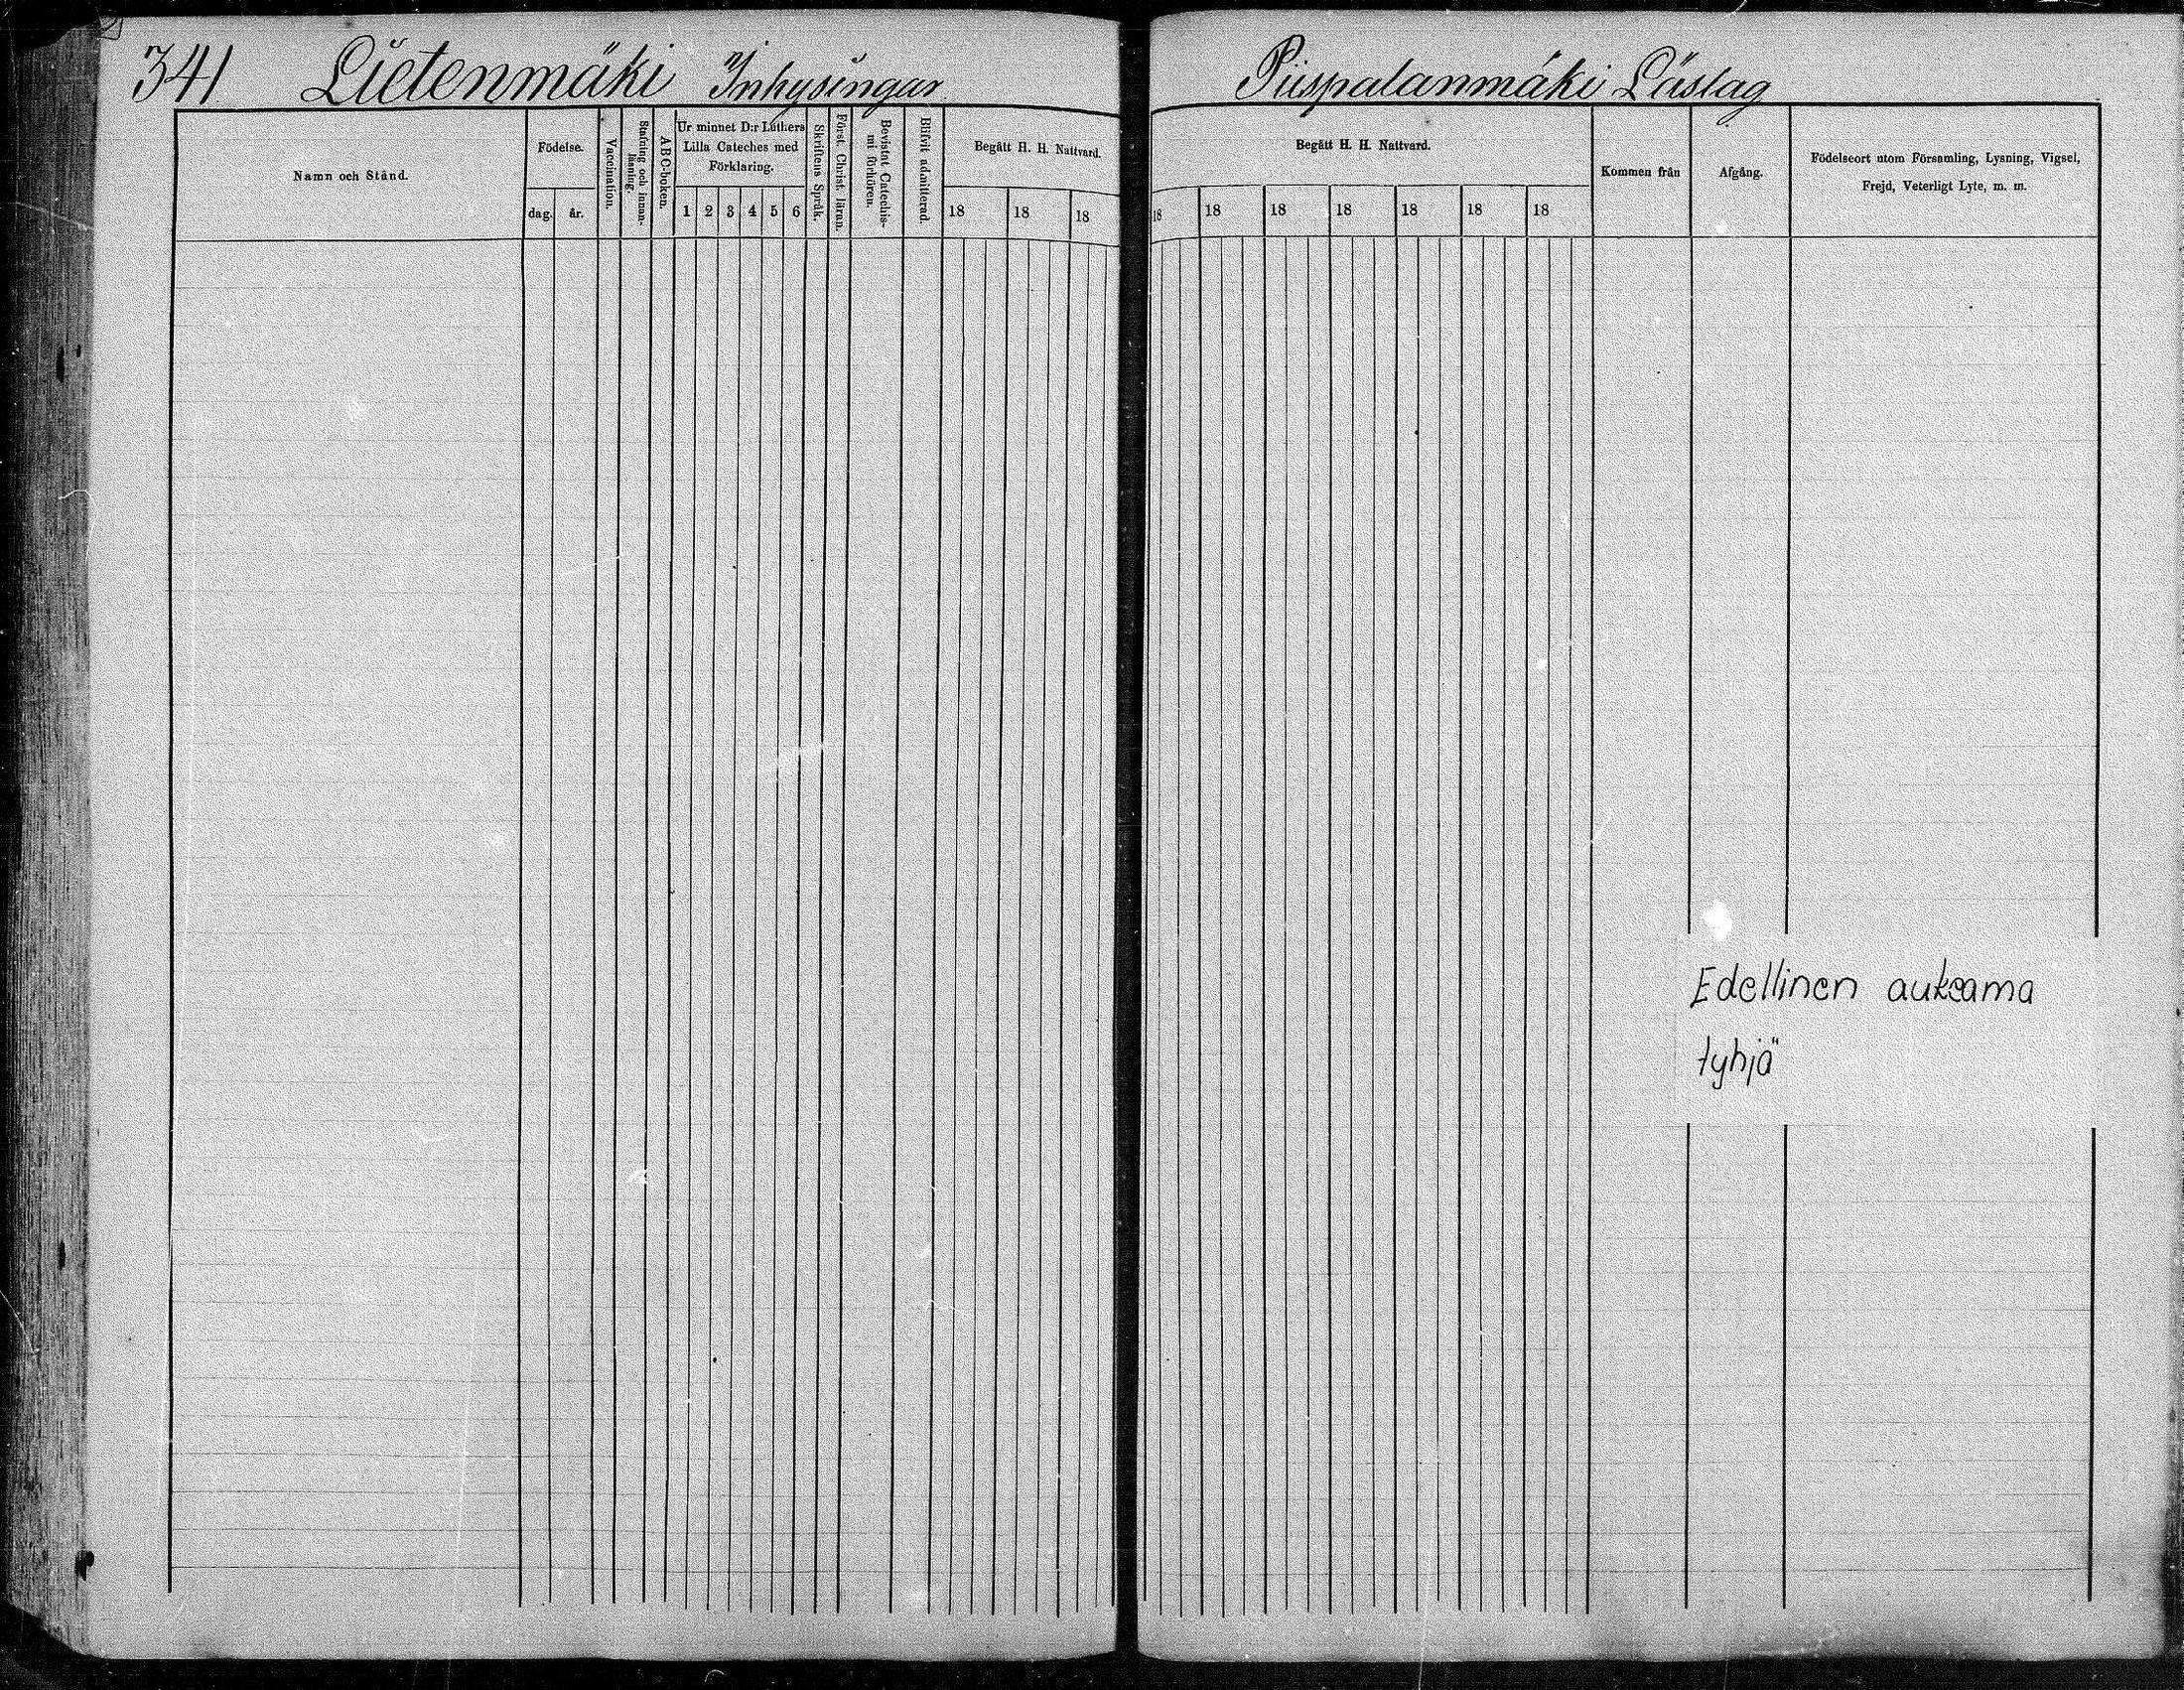 341 Lietenmäki Inhysingar
Piispalanmäki Läslag
Namn och Stånd.
Födelse.
dag.
år.
Vaccination.
Stafning och innan-
läsning.
ABC-boken.
Ur minnet D:r Luthers
Lilla Cateches med
Förklaring.
1 2 3 4 5 6
Skriftens Språk.
Först. Christ. läran.
Bevistat Catechis-
mi förhören.
Blifvit admitterad.
Begått H. H. Nattvard.
18 18 18
Begått H. H. Nattvard.
18 18 18 18 18 18 18
Kommen från
Afgång.
Födelseort utom Församling, Lysning, Vigsel,
Frejd, Veterligt Lyte, m. m.
Edellinen aukeama
tyhjä